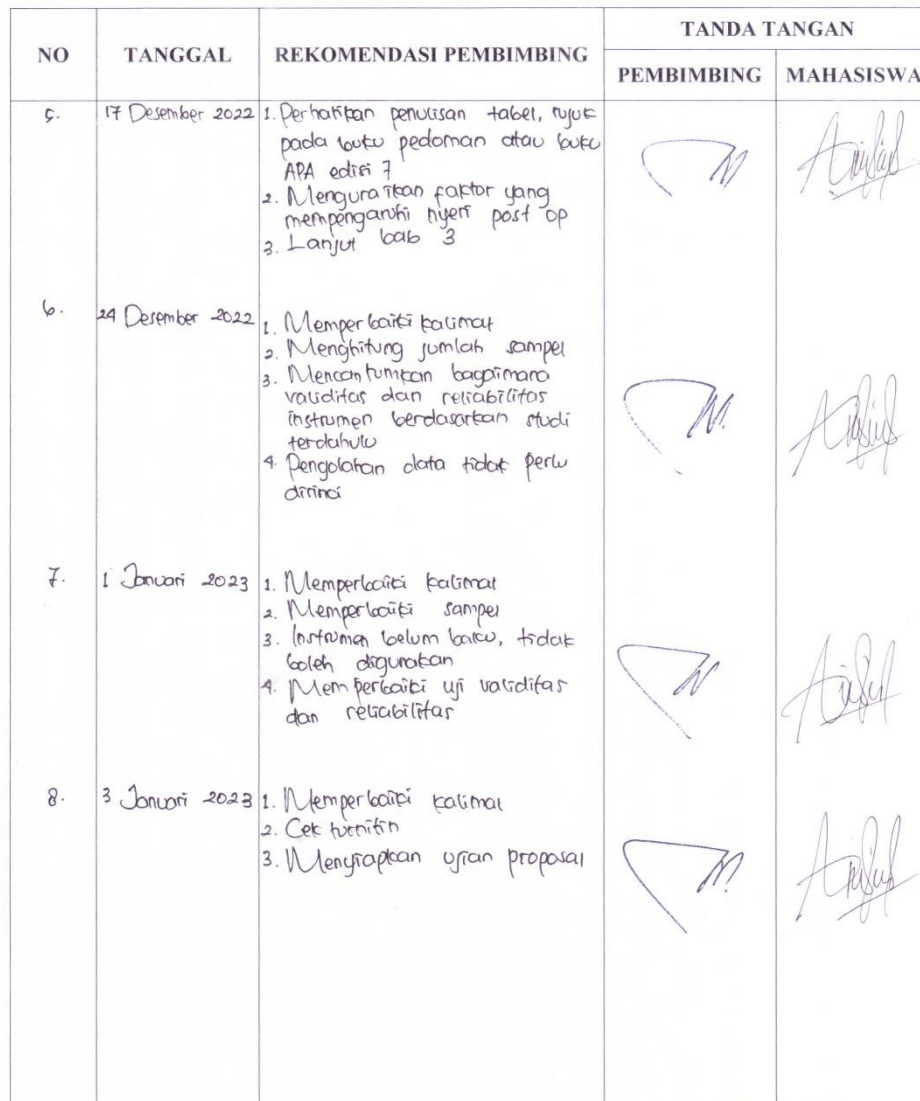 NO TANGGAL REKOMENDASI PEMBIMBING TANDA TANGAN
PEMBIMBING MAHASISWA
5. 17 Desember 2022 1. Perhatikan penulisan tabel, rujuk
pada buku pedoman atau buku
APA edisi 7
2. Menguraikan faktor yang
mempengaruhi nyeri post op
3. Lanjut bab 3
6. 24 Desember 2022 1. Memperbaiki kalimat
2. Menghitung jumlah sampel
3. Mencantumkan bagaimana
validitas dan reliabilitas
instrumen berdasarkan studi
terdahulu
4. Pengolahan data tidak perlu
dirinci
7. 1 Januari 2023 1. Memperbaiki kalimat
2. Memperbaiki sampel
3. Instrumen belum baku, tidak
boleh digunakan
4. Memperbaiki uji validitas
dan reliabilitas
8. 3 Januari 2023 1. Memperbaiki kalimat
2. Cek turnitin
3. Menyiapkan ujian proposal